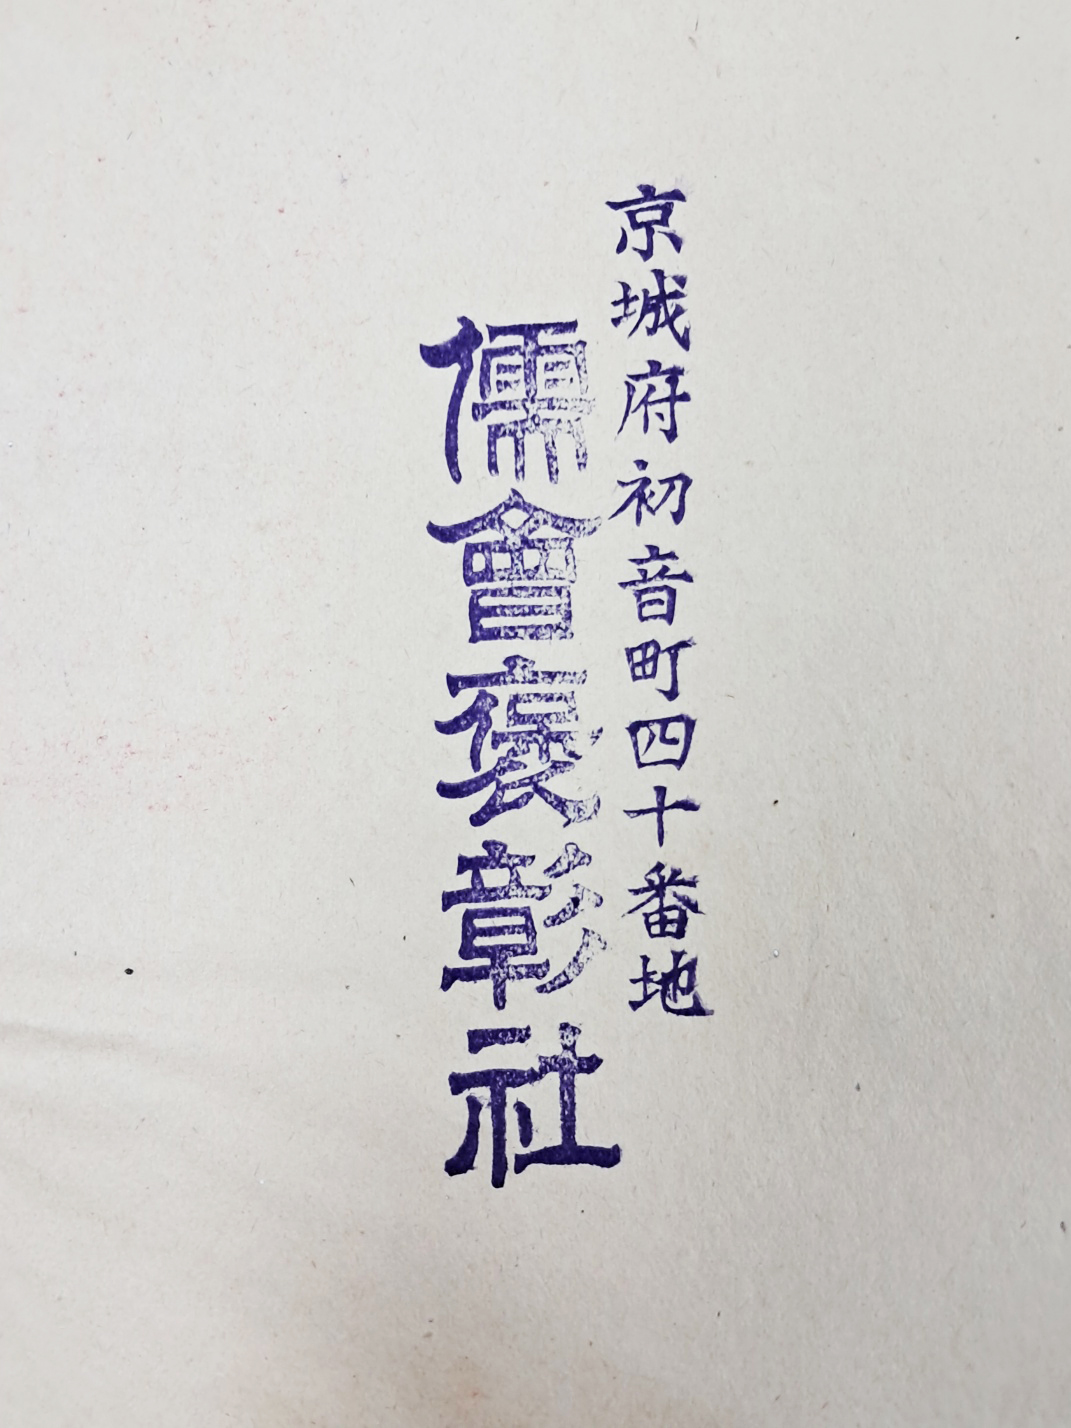 京城府初音町四十番地
儒會褒彰社